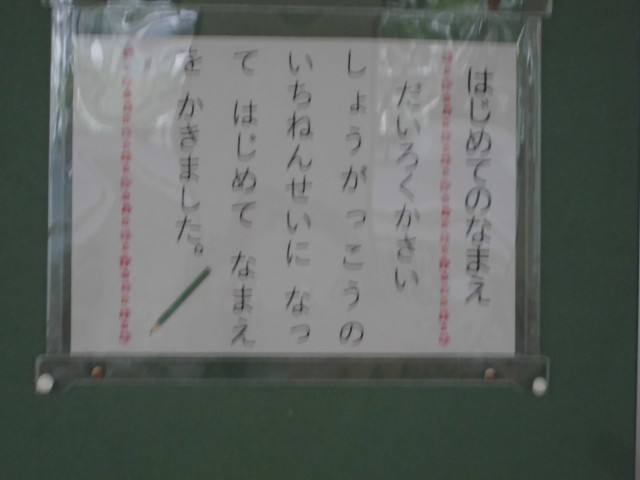 はじめてのなまえ
だいろくかさい
しょうがっこうの
いちねんせいに なっ
て はじめて なまえ
を かきました。